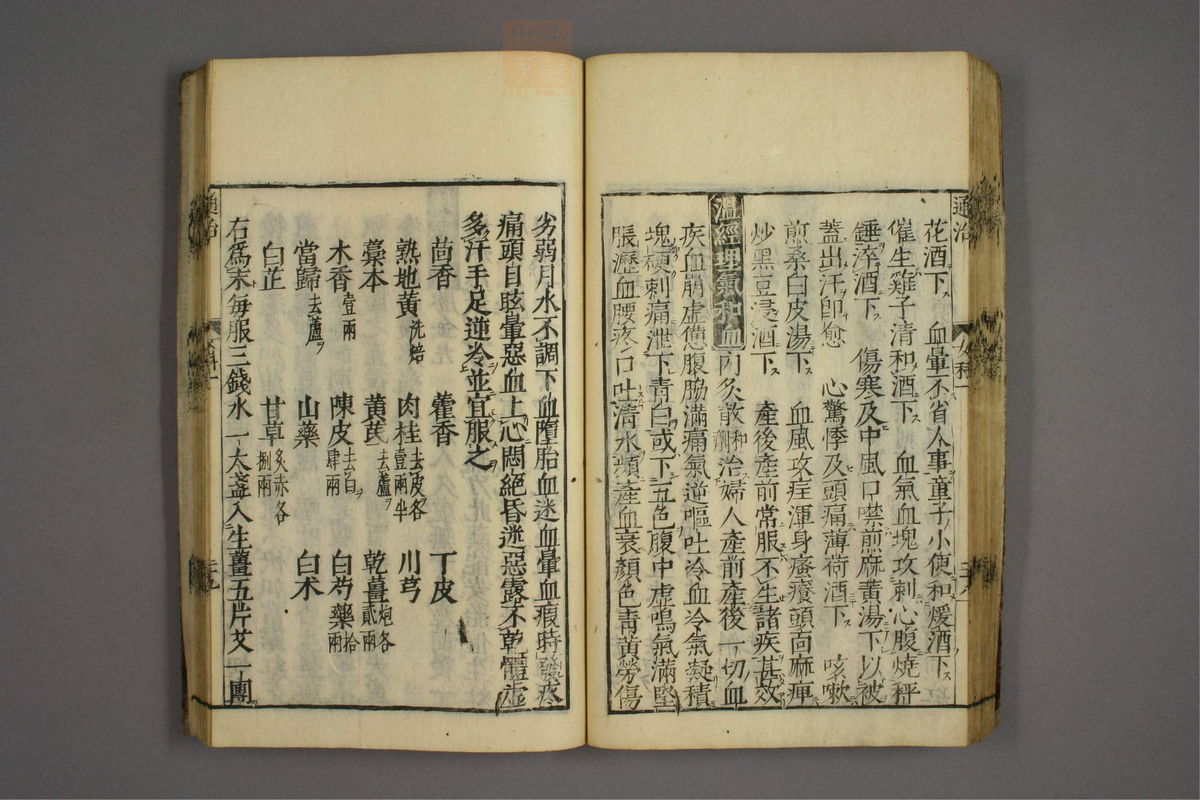 通治
女科一
花酒下 血暈不省人事童子小使和煖酒下
催生雞子清和酒下 血氣血塊攻刺心腹燒秤
錘淬酒下 傷寒及中風口噤煎麻黃湯下以被
蓋出汗卽愈 心驚悸及頭痛薄荷酒下 咳嗽
煎桑白皮湯下 血風攻疰渾身瘙癢頭靣麻痺
炒黑豆浸酒下 產後產前常服不生諸疾甚效
溫經理氣和血 內炙散 和劑 治婦人產前產後一切血
疾血崩虛憊腹脇滿痛氣逆嘔吐冷血冷氣凝積
塊梗刺痛泄下青白或下五色腹中虛鳴氣滿堅
脹瀝血腰疼口吐清水頻產血衰顏色青黃勞傷
劣弱月水不調下血墮胎血迷血暈血瘕時發疼
痛頭目眩暈惡血上心悶絕昏迷惡露不乾體虛
多汗手足逆冷並宜服之
茴香 藿香 丁皮
熟地黃 洗焙 肉桂 去皮各壹兩半 川芎
藁本 黃芪 去蘆 乾薑 炮各貳兩
木香 壹兩 陳皮 去白肆兩 白芍藥 拾兩
當歸 去蘆 山藥 白朮
白芷 甘草 炙赤各捌兩
右爲末每服三錢水一大盞入生薑五片艾一團
通治
女科一